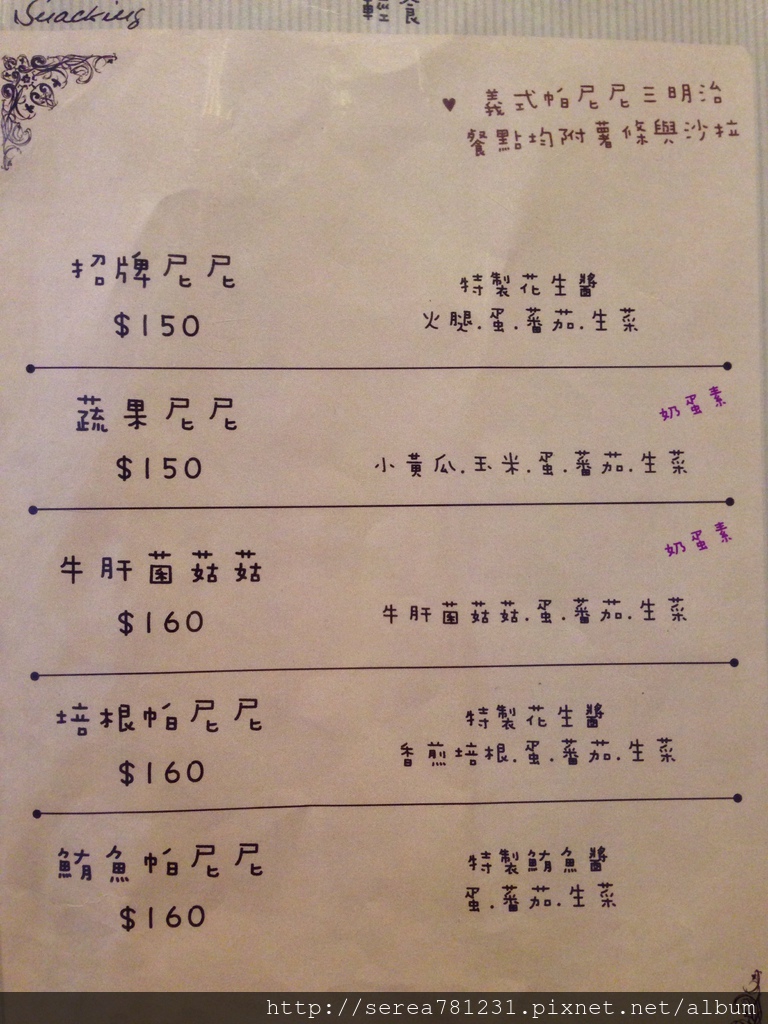 Snacking
輕
食
♥ 義式帕尼尼三明治
餐點均附薯條與沙拉
招牌尼尼
$150
特製花生醬
火腿.蛋.蕃茄.生菜
蔬果尼尼
$150
奶蛋素
小黃瓜.玉米.蛋.蕃茄.生菜
牛肝菌菇菇
$160
奶蛋素
牛肝菌菇菇.蛋.蕃茄.生菜
培根帕尼尼
$160
特製花生醬
香煎培根.蛋.蕃茄.生菜
鮪魚帕尼尼
$160
特製鮪魚醬
蛋.蕃茄.生菜
http://serea781231.pixnet.net/album